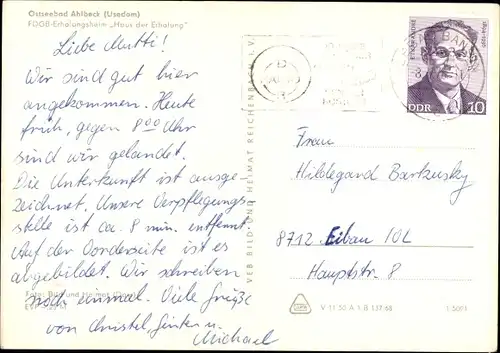 Ostseebad Ahlbeck (Usedom)
FDGB-Erholungsheim „Haus der Erholung"
Liebe Mutti!
Wir sind gut hier
angekommen. Heute
früh, gegen 8⁰⁰ Uhr
sind wir gelandet.
Die Unterkunft ist ausge-
zeichnet. Unsere Verpflegungs-
stelle ist ca. 8 min. entfernt
Auf der Vorderseite ist es
abgebildet. Wir schreiben
noch einmal. Viele Grüße
von Christel, Günter u.
Michael
VEB BILD UND HEIMAT REICHENBACH i. V.
DDR 10
Frau
Hildegard Bartzusky
8712 Eibau OL
Hauptstr. 8
V 11 50 A 1 B 137/68